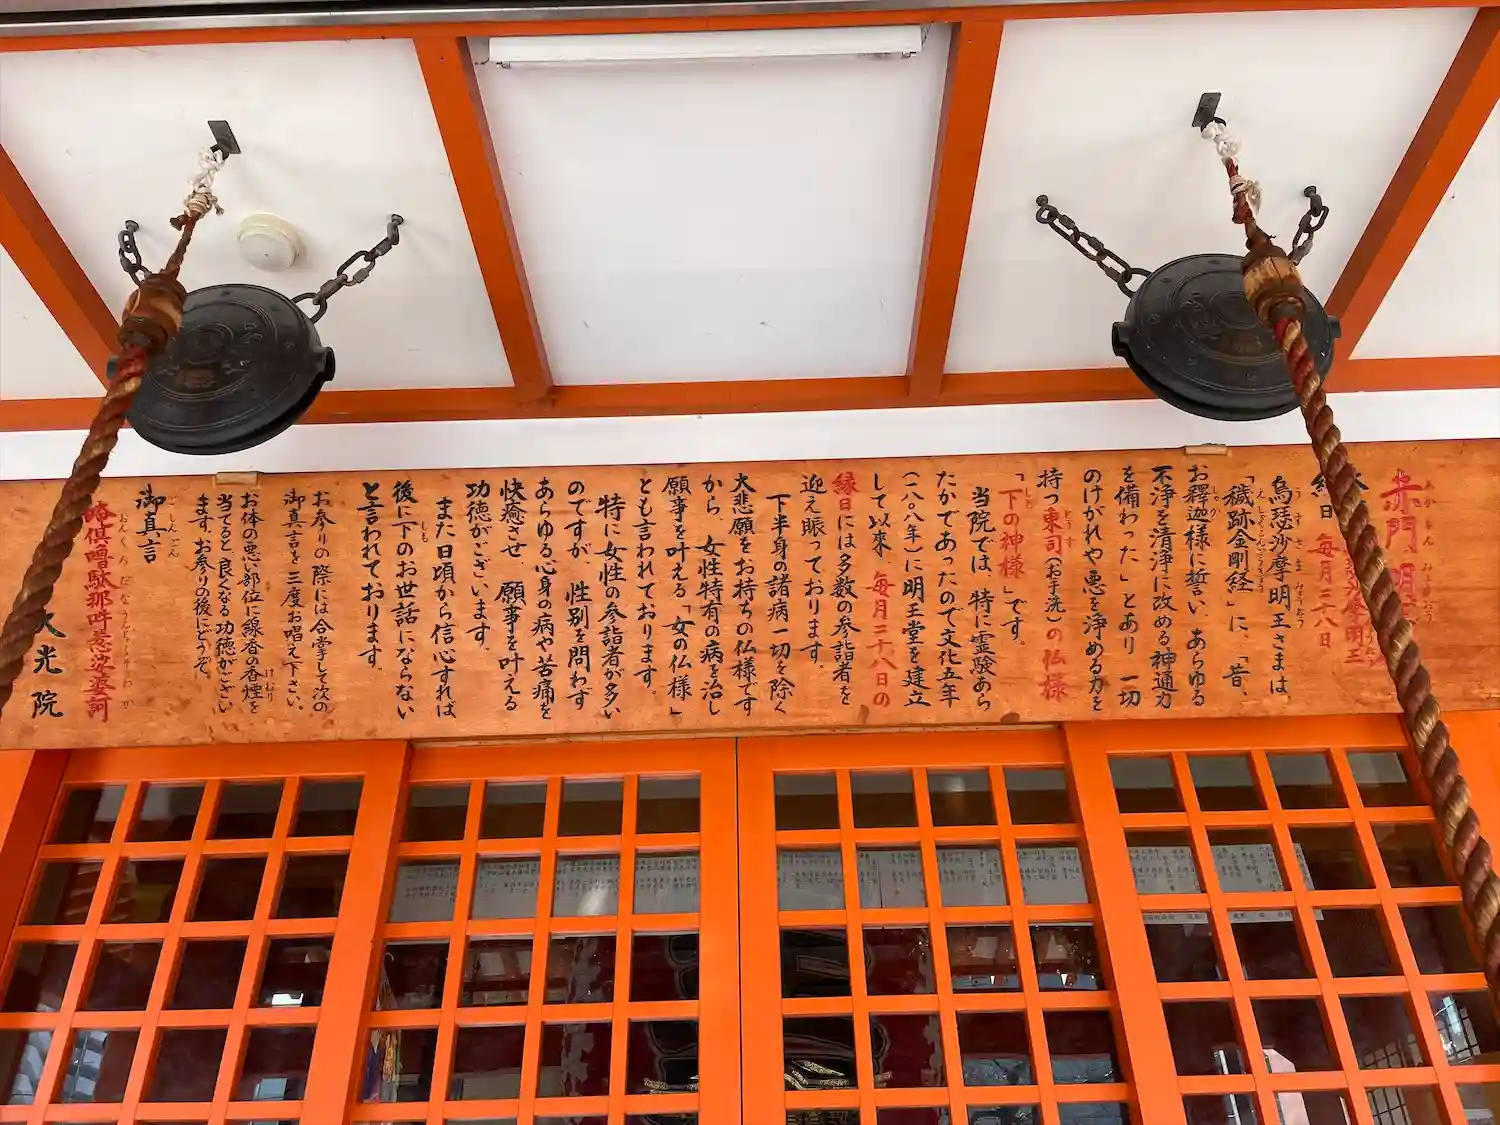 赤門、明
あかもん みょうおう
沙摩明王
縁日 毎月二十八日
烏瑟沙摩明王さまは、
うすさまみょうおう
「穢跡金剛経」に、「昔、
えしゃくこんごうきょう
お釈迦様に誓い、あらゆる
しゃか
不浄と清浄に改める神通力
を備わった」とあり 一切
のけがれや悪を浄める力を
持つ東司(お手洗)の仏様
とうす
「下の神様」です。
しも
当院では、特に霊験あら
たかであったので文化五年
(一八〇八年)に明王堂を建立
して以来、毎月二十八日の
縁日には多数の参詣者を
迎え賑っております。
下半身の諸病一切を除く
大悲願をお持ちの仏様です
から、女性特有の病を治し
願事を叶える「女の仏様」
とも言われております。
特に女性の参詣者が多い
のですが、性別を問わず
あらゆる心身の病や苦痛を
快癒させ、願事を叶える
功徳がございます。
また日頃から信心すれば
後に下のお世話にならない
しも
と言われております。
お参りの際には合掌して次の
御真言を三度お唱え下さい。
お体の悪い部位に線香の香煙を
けむり
当てると、良くなる功徳がござい
ます。お参りの後にどうぞ。
御真言
ごしんごん
倶嚕駄那吽惹
おんくろだなううんじゃくそわか
大光院